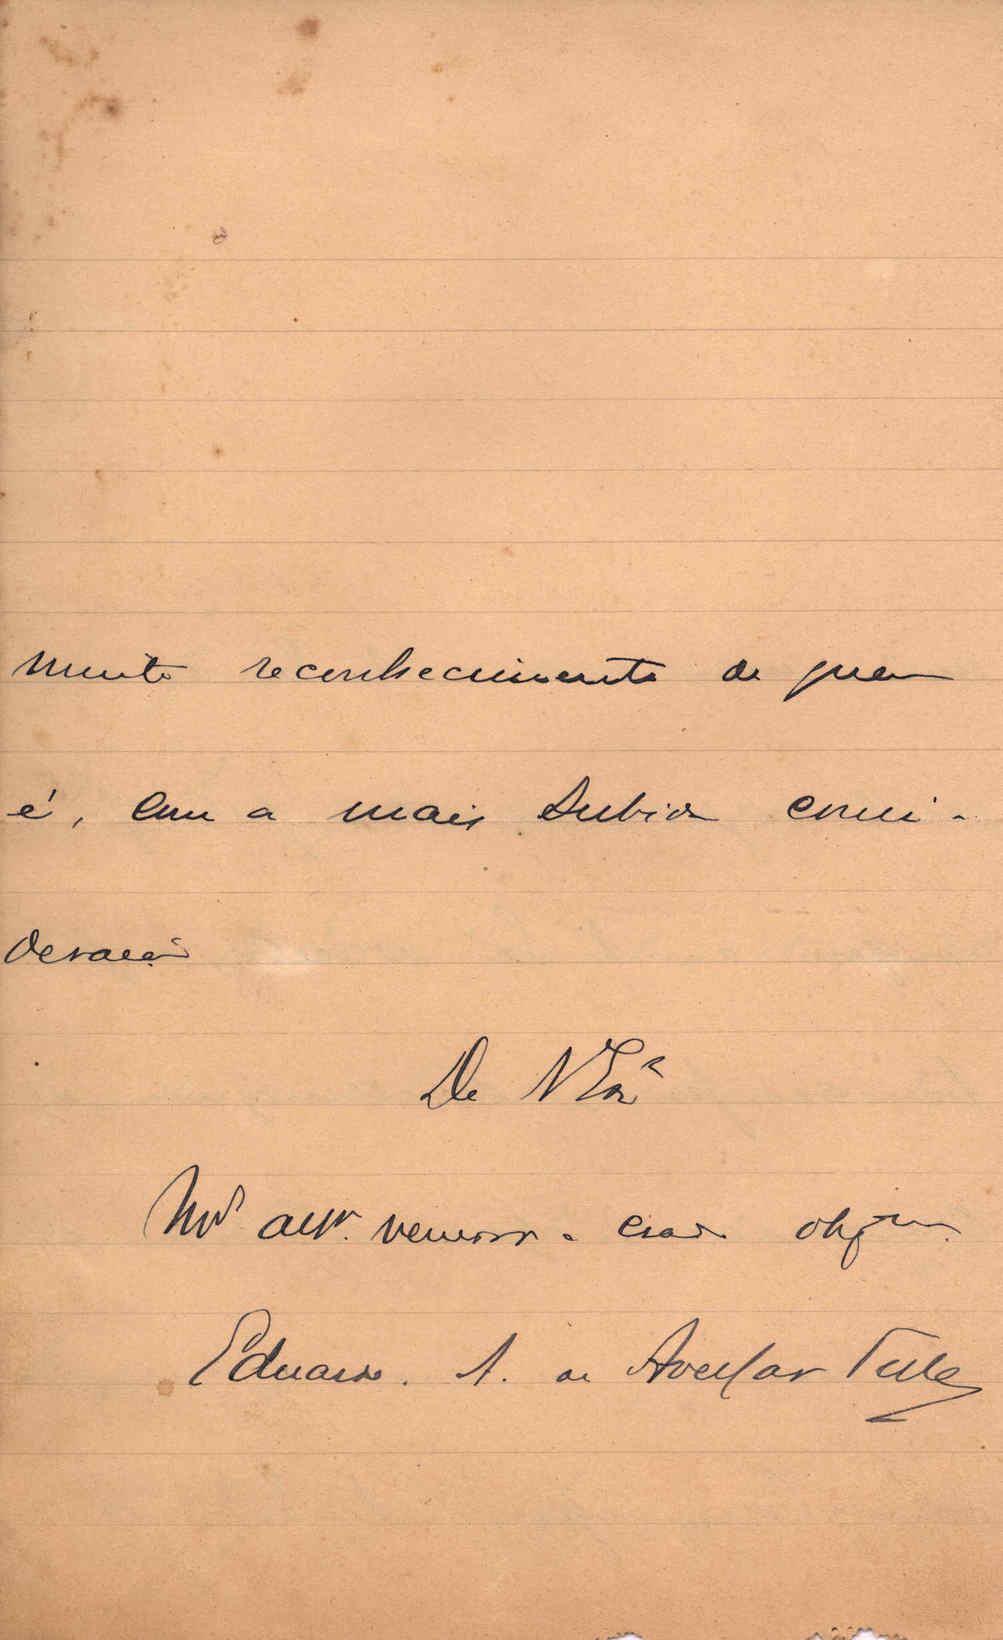 muito reconhecimento de quem
é, com a mais subida consi-
deração
De V Exª
Mtº attº veneror e criado obgmo
Eduardo. A. de Avellar Telles